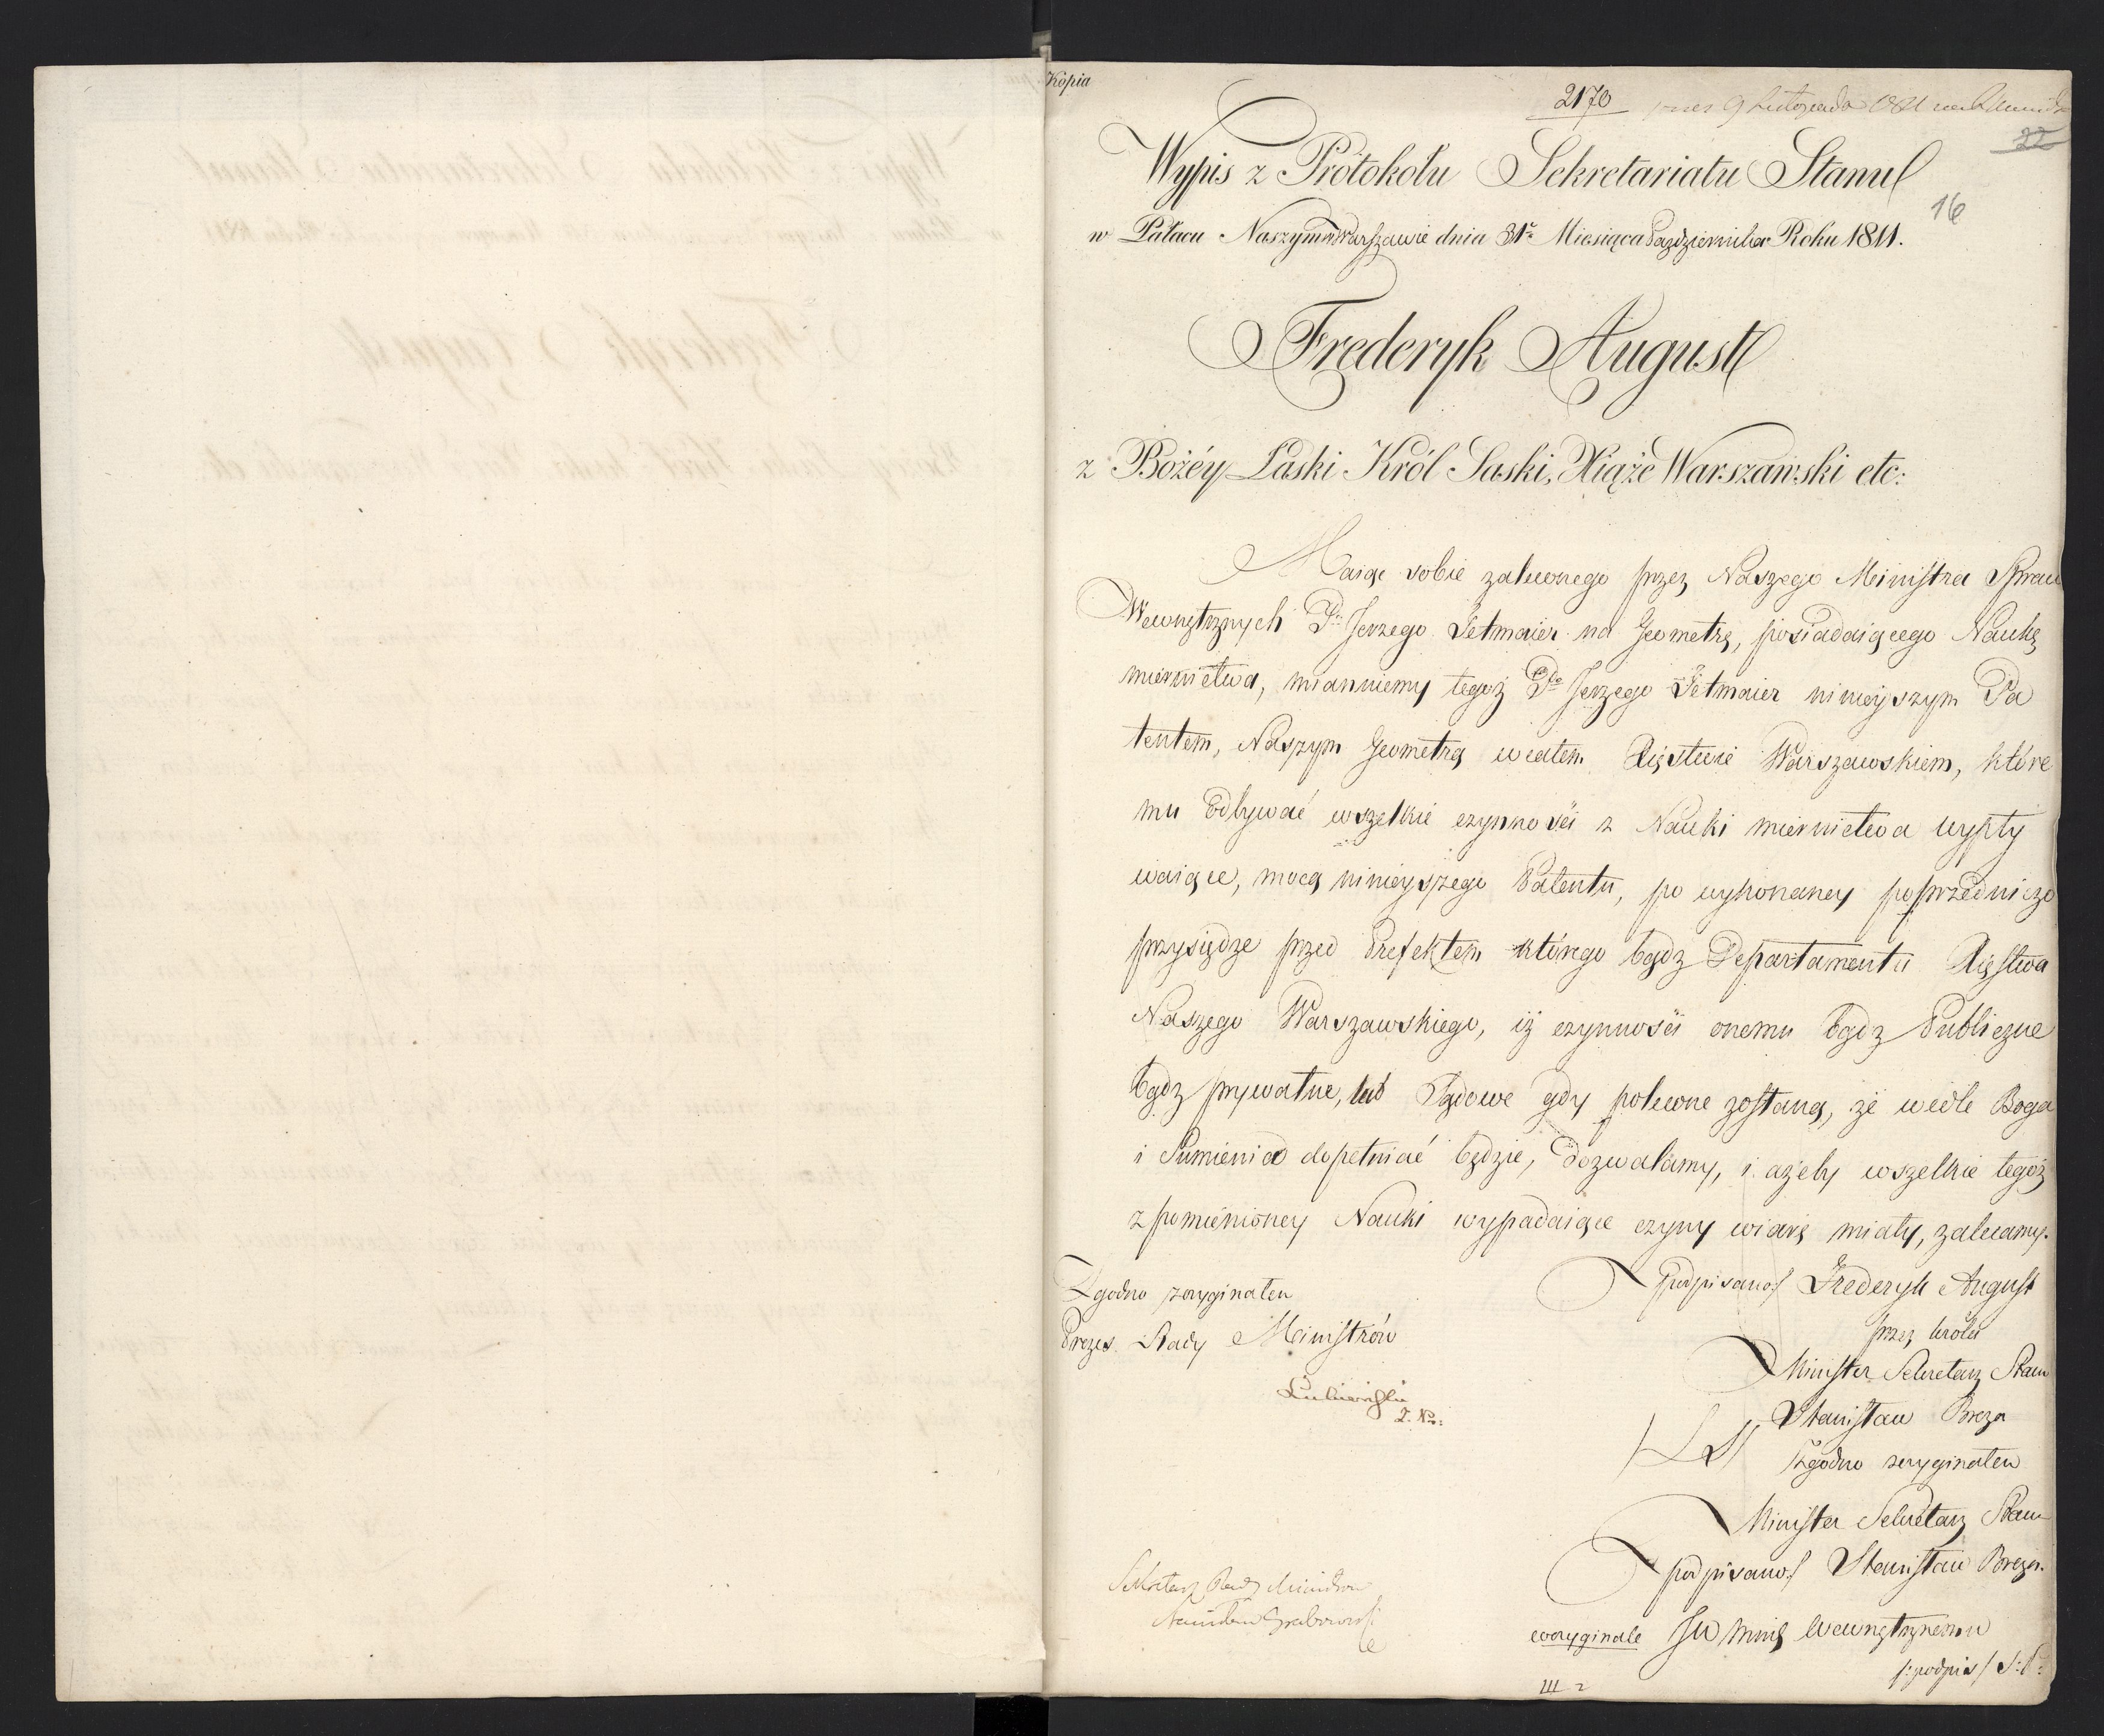 Kopia
2170 9 Listopada 1811
22
16
Wypis z Protokołu Sekretariatu Stanu
w Pałacu Naszym w Warszawie dnia 31º Miesiąca Października Roku 1811.
Frederyk August
z Bożéy Łaski Król Saski, Xiąże Warszawski etc:
Maiąc sobie zaleconego przez Naszego Ministra Spraw
Wewnętrznych Pª Jerzego Setmaier na Geometrę, posiadaiącego Naukę
miernictwa, mianuiemy tegoż Pª Jerzego Setmaier ninieyszym Pa
tentem, Naszym Geometrą w całem Xięstwie Warszawskiem, które
mu odbywać wszelkie czynności z Nauki miernictwa wypły
waiące, mocą ninieyszego Patentu, po wykonaney poprzedniczo
przysiędze przed Prefektem którego bądz Departamentu Xięstwa
Naszego Warszawskiego, iż czynności onemu bądz Publiczne
bądz prywatne, lub Sądowe gdy polecone zostaną, że wedle Boga
i Sumienia dopełniać będzie, dozwalamy, i ażeby wszelkie tegoż
z pomienioney Nauki wypadaiące czyny wiarę miały, zalecamy.
Zgodno z oryginałem
Prezes Rady Ministrów
podpisano/ Frederyk August
przez króla
Minister Sekretarz Stanu
Stanisław Breza
/LS/ Zgodno z oryginałem
Minister Sekretarz Stanu
podpisano/ Stanisław Breza.
Sekretarz Rady Ministrów
Stanisław Grabowski
w oryginale JW Minis Wewnętrznemu
/:podpis/ S:P: